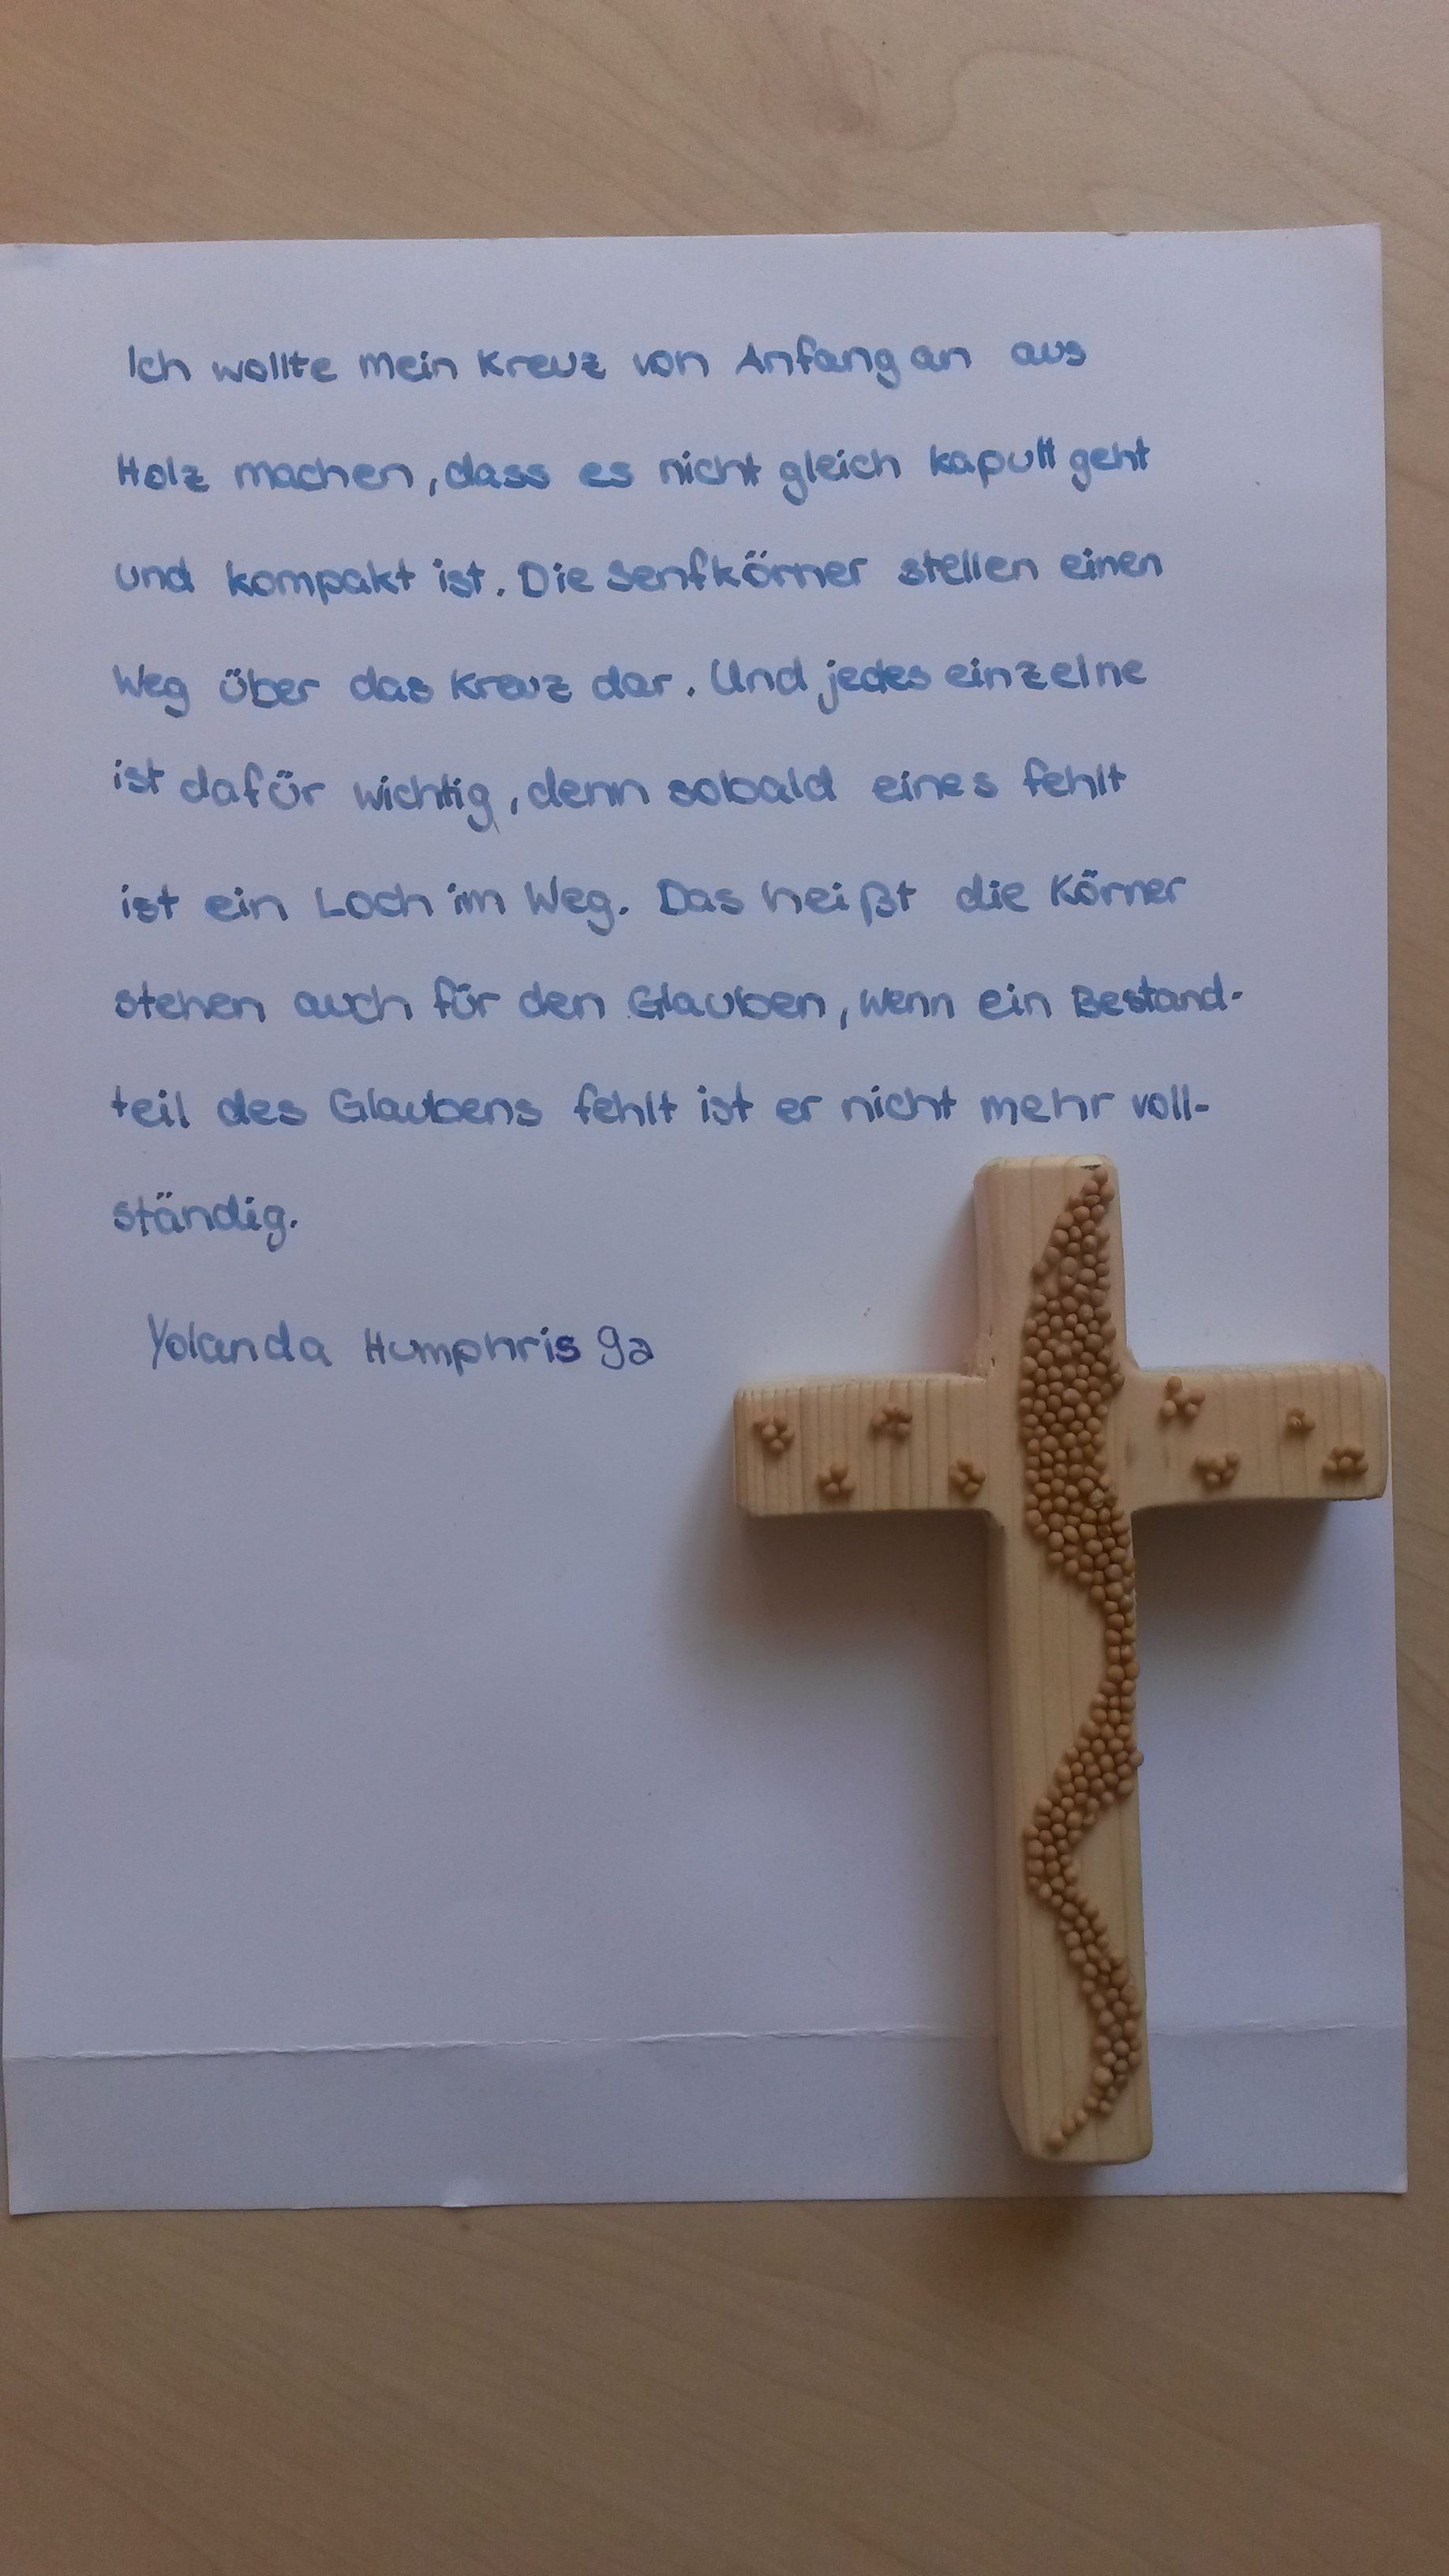 Ich wollte mein Kreuz von Anfang an aus
Holz machen, dass es nicht gleich kaputt geht
und kompakt ist. Die Senfkörner stellen einen
Weg über das Kreuz dar. Und jedes einzelne
ist dafür wichtig, denn sobald eines fehlt
ist ein Loch im Weg. Das heißt die Körner
stehen auch für den Glauben, wenn ein Bestand-
teil des Glaubens fehlt ist er nicht mehr voll-
ständig.
Yolanda Humphris 9a